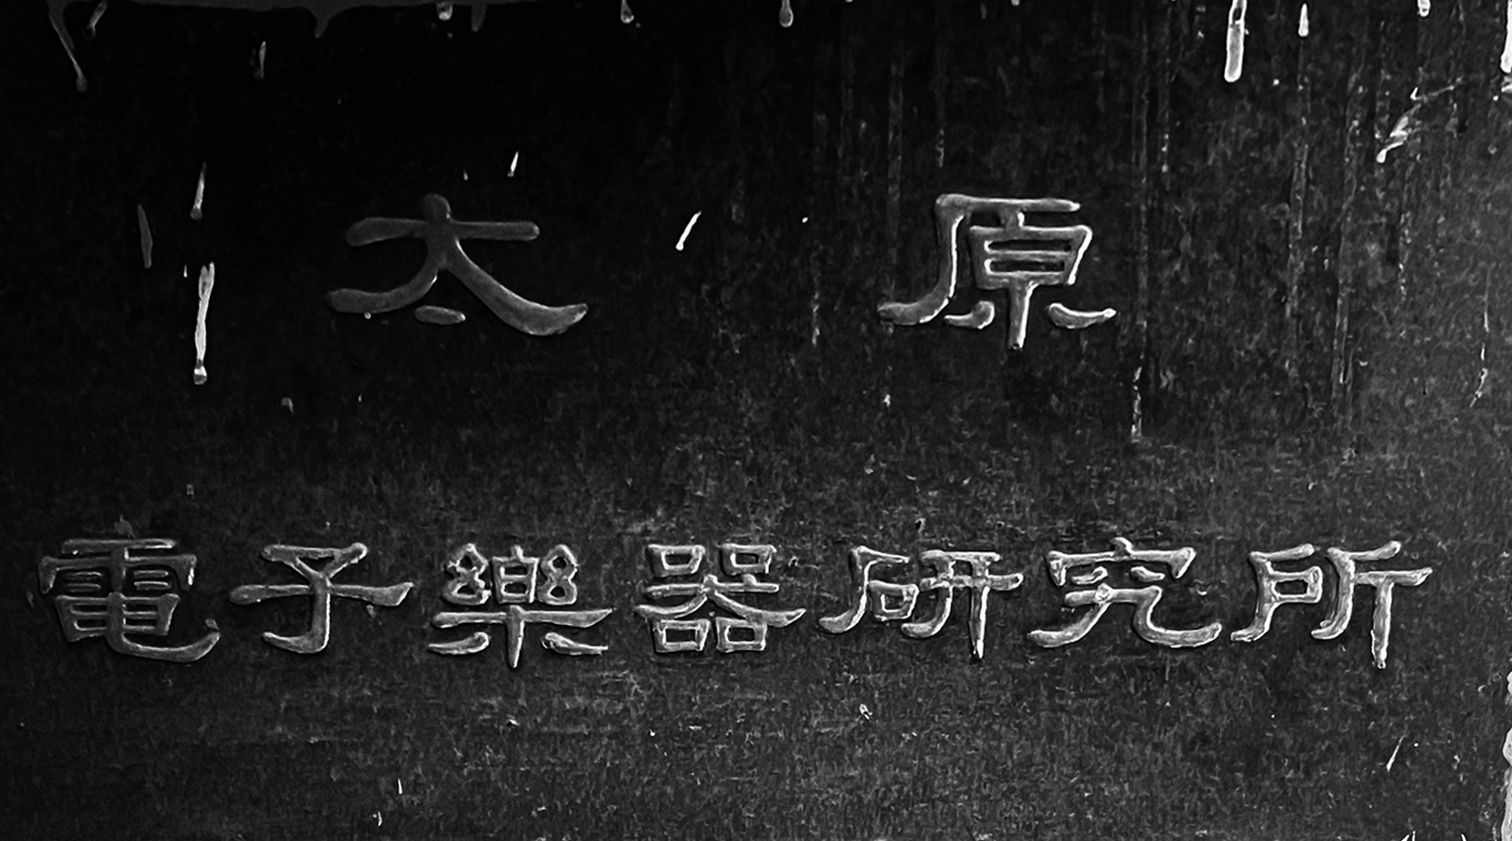 太原
電子樂器研究所